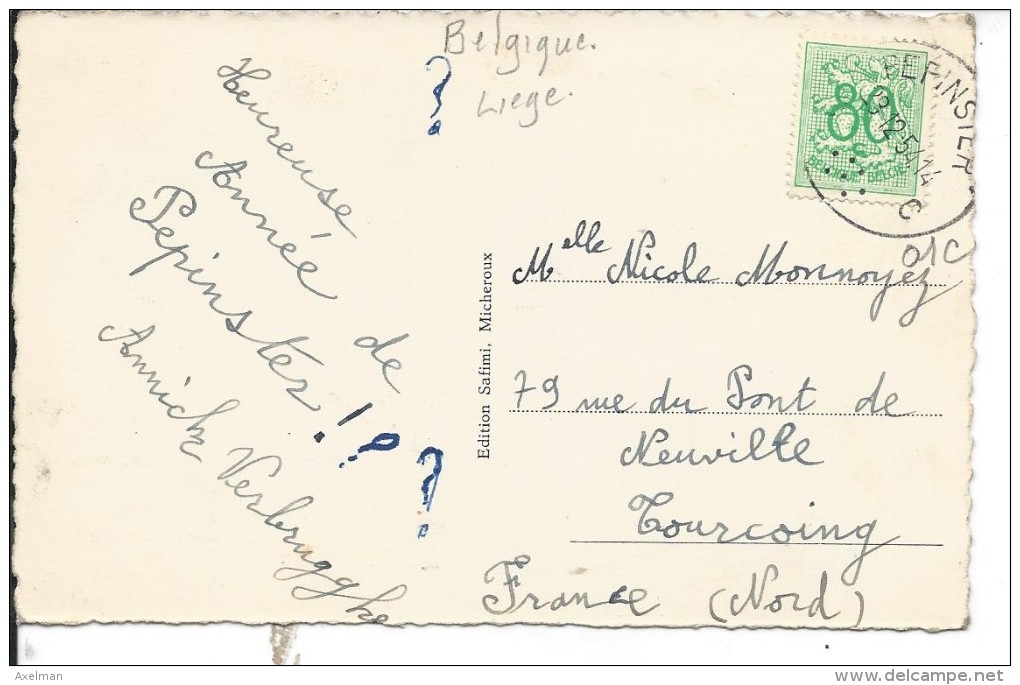 Belgique.
Liege.
?
Heureuse
Année de
Pepinster!?
Annick Verbrugghe
?
Edition Safimi, Micheroux
80
BELGIQUE BELGIE
PEPINSTER
C
Melle Nicole Monnoyez
79 rue du Pont de
Neuville
Tourcoing
France (Nord)
Axelman
www.delcampe.net